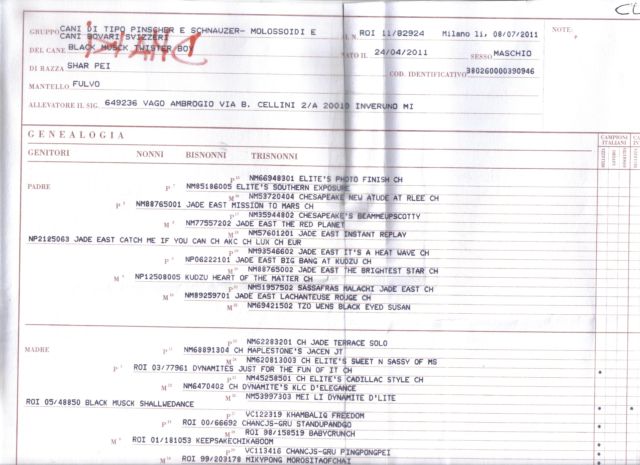 CL
GRUPPO CANI DI TIPO PINSCHER E SCHNAUZER- MOLOSSOIDI E CANI BOVARI SVIZZERI
N. ROI 11/82924 Milano li, 08/07/2011 NOTE:
DEL CANE BLACK MUSCK TWISTER BOY
NATO IL 24/04/2011 SESSO MASCHIO
DI RAZZA SHAR PEI
COD. IDENTIFICATIVO 380260000390946
MANTELLO FULVO
ALLEVATORE IL SIG. 649236 VAGO AMBROGIO VIA B. CELLINI 2/A 20010 INVERUNO MI
GENEALOGIA
CAMPIONI ITALIANI
GENITORI NONNI BISNONNI TRISNONNI
BELLEZZA LAVORO
P NM66948301 ELITE'S PHOTO FINISH CH
PADRE P NM85186005 ELITE'S SOUTHERN EXPOSURE
M NM53720404 CHESAPEAKE NEW ATUDE AT RLEE CH
P NM88765001 JADE EAST MISSION TO MARS CH
P NM35944802 CHESAPEAKE'S BEAMMEUPSCOTTY
M NM77557202 JADE EAST THE RED PLANET
M NM57601201 JADE EAST INSTANT REPLAY
NP2125063 JADE EAST CATCH ME IF YOU CAN CH AKC CH LUX CH EUR
P NM93546602 JADE EAST IT'S A HEAT WAVE CH
P NP06222101 JADE EAST BIG BANG AT KUDZU CH
M NM88765002 JADE EAST THE BRIGHTEST STAR CH
M NP12508005 KUDZU HEART OF THE MATTER CH
P NM51957502 SASSAFRAS MALACHI JADE EAST CH
M NM89259701 JADE EAST LACHANTEUSE ROUGE CH
M NM69421502 TZO WENS BLACK EYED SUSAN
P NM62283201 CH JADE TERRACE SOLO
MADRE P NM68891304 CH MAPLESTONE'S JACEN JT
M NM620813003 CH ELITE'S SWEET N SASSY OF MS
P ROI 03/77961 DYNAMITES JUST FOR THE FUN OF IT CH
P NM45258501 CH ELITE'S CADILLAC STYLE CH
M NM6470402 CH DYNAMITE'S KLC D'ELEGANCE
M NM53997303 MEI LI DYNAMITE D'LITE
ROI 05/48850 BLACK MUSCK SHALLWEDANCE
P VC122319 KHAMBALIQ FREEDOM
P ROI 00/66692 CHANCJS-GRU STANDUPANDGO
M ROI 98/158519 BABYCRUNCH
M ROI 01/181053 KEEPSAKECHIKABOOM
P VC113416 CHANCJS-GRU PINGPONGPEI
M ROI 99/203178 MIKYPONG MOROSITAOFCHAI